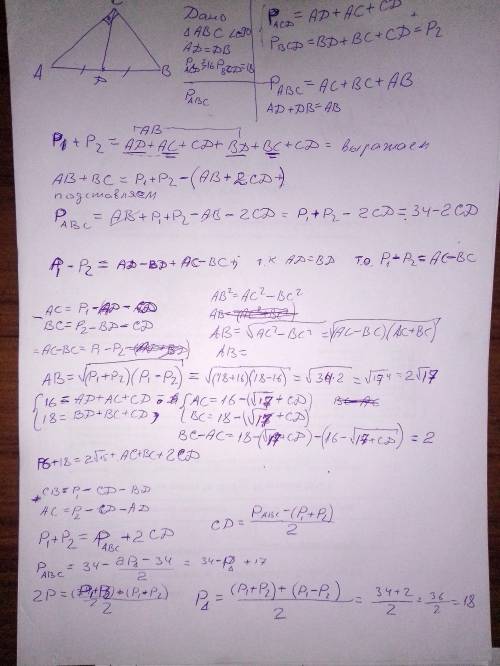 C
A
D
B
Дано
△ABC ∠=90
AD=DB
P_ACD=16 P_BCD=18
P_ABC
P_ACD=AD+AC+CD
P_BCD=BD+BC+CD=P2
P_ABC=AC+BC+AB
AD+DB=AB
AB
P1+P2=AD+AC+CD+BD+BC+CD= выражаем
AB+BC=P1+P2-(AB+2CD)
подставляем
P_ABC=AB+P1+P2-AB-2CD=P1+P2-2CD=34-2CD
P1-P2=AD-BD+AC-BC; т.к AD=BD то P1-P2=AC-BC
AC=P1-AD-CD
BC=P2-BD-CD
=AC-BC=P1-P2
AB²=AC²-BC²
AB=√AC²-BC²=√(AC-BC)(AC+BC)
AB=
AB=√(P1+P2)(P1-P2)=√(18+16)(18-16)=√34·2=√17·4=2√17
{16=AD+AC+CD
{18=BD+BC+CD
{AC=16-(√17+CD)
{BC=18-(√17+CD)
BC-AC=18-(√17+CD)-(16-√17+CD)=2
CB=P1-CD-BD
AC=P2-CD-AD
P1+P2=P_ABC+2CD
CD=P_ABC-(P1+P2)/2
P△=(P1+P2)+(P1-P2)/2=34+2/2=36/2=18